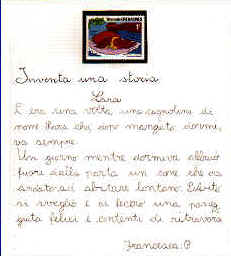 Inventa una storia
Lara
C'era una volta, una cagnolina di
nome Lara che dopo mangiato dormi,
va sempre.
Un giorno mentre dormiva abbaiò
fuori dalla porta un cane che
ad abitare lontano. Lara
si svegliò e si fecero una passeg,
giata felici e contenti di ritrovarsi
Francesca. P